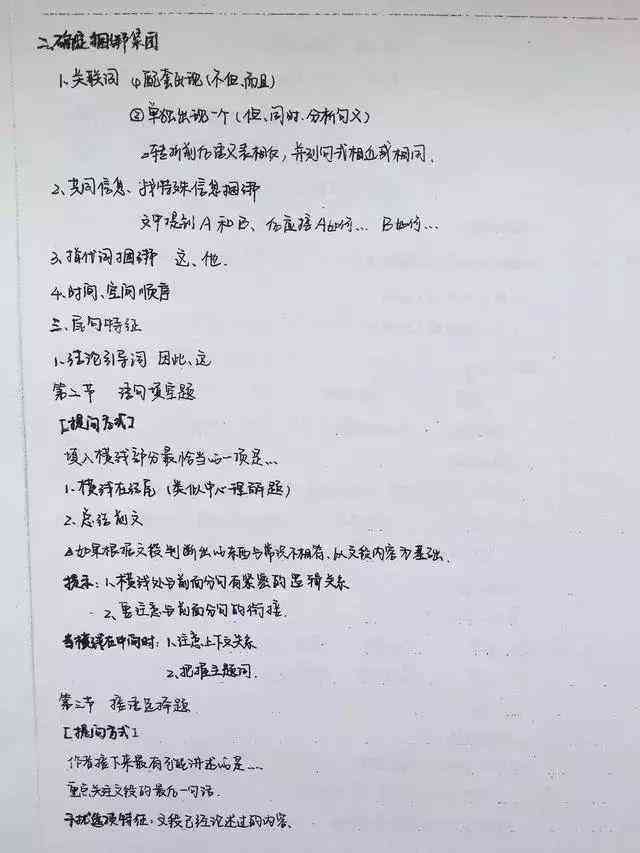 二、确定捆绑集团
1、关联词 ①配套出现(不但、而且)
②单独出现一个(但、同时、分析句文)
⇒转折前后语义表相反,并列问我相近或相同.
2、共同信息、找特殊信息捆绑
文中提到A和B、后应接A如何... B如何...
3、指代词捆绑 这、他.
4、时间、空间顺序
三、尾句特征
1、结论引导词 因此、这
第二节 语句填空题
[提问方式]
填入横线部分最恰当的一项是...
1、横线在结尾(类似中心理解题)
2、总结前文
如果根据文段判断出的东西与常识不相符、以文段内容为基础.
提示:1、横线处与前面分句有紧紧的逻辑关系
2、要注意与前面分句的衔接.
当横线在中间时:1、注意上下文关系
2、把握主题词.
第三节 接语选择题
[提问方式]
作者接下来最有可能讲述的是...
重点关注文段的最后一句话.
干扰选项特征:文段已经论述过的内容.